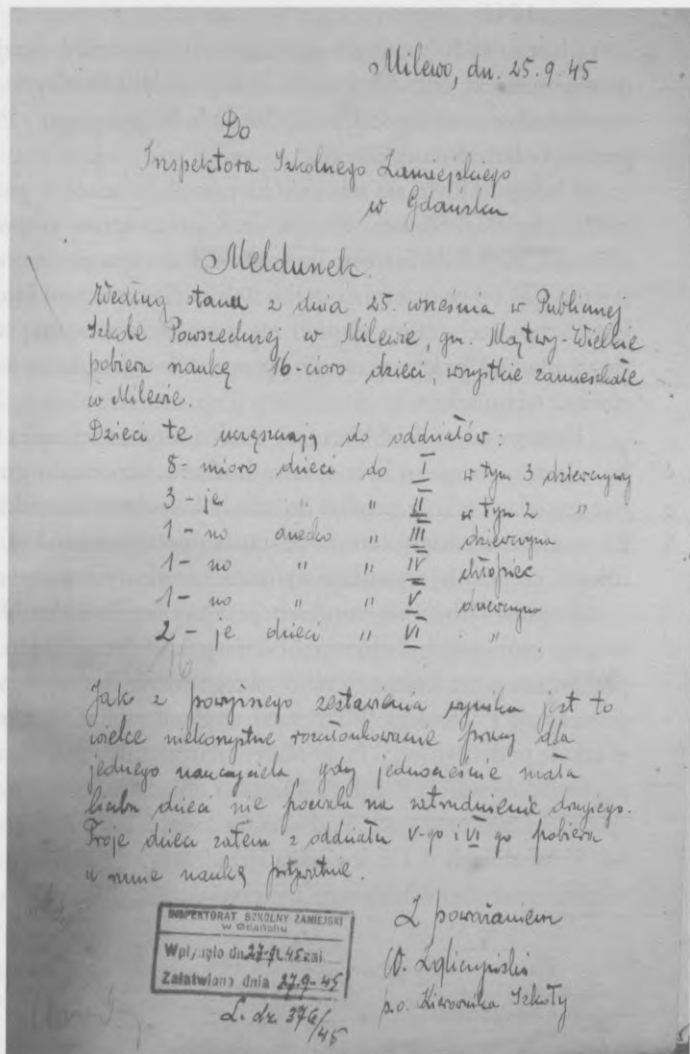 Milewo, dn. 25.9.45
Do
Inspektora Szkolnego Zamiejskiego
w Gdańsku
Meldunek.
Według stanu z dnia 25. września w Publicznej
Szkole Powszechnej w Milewie, gm. Mątwy-Wielkie
pobiera naukę 16-cioro dzieci, wszystkie zamieszkałe
w Milewie.
Dzieci te uczęszczają do oddziałów:
8-mioro dzieci do I w tym 3 dziewczynej
3-je " " II w tym 2 "
1-no dziecko " III dziewczyna
1-no " " IV chłopiec
1-no " " V dziewczyna
2-je dzieci " VI "
16
Jak z powyższego zestawienia wynika jest to
wielce niekorzystne rozczłonkowanie pracy dla
jednego nauczyciela, gdy jednocześnie mała
liczba dzieci nie pozwala na zatrudnienie drugiego.
Troje dzieci zatem z oddziału V-go i VI go pobiera
u mnie naukę prywatnie.
INSPEKTORAT SZKOLNY ZAMIEJSKI
w Gdańsku
Wpłynęło dn. 27.9.45 zał
Załatwiono dnia 27.9-45
L. dz. 376/45
Z poważaniem
W.
p.o. Kierownika Szkoły